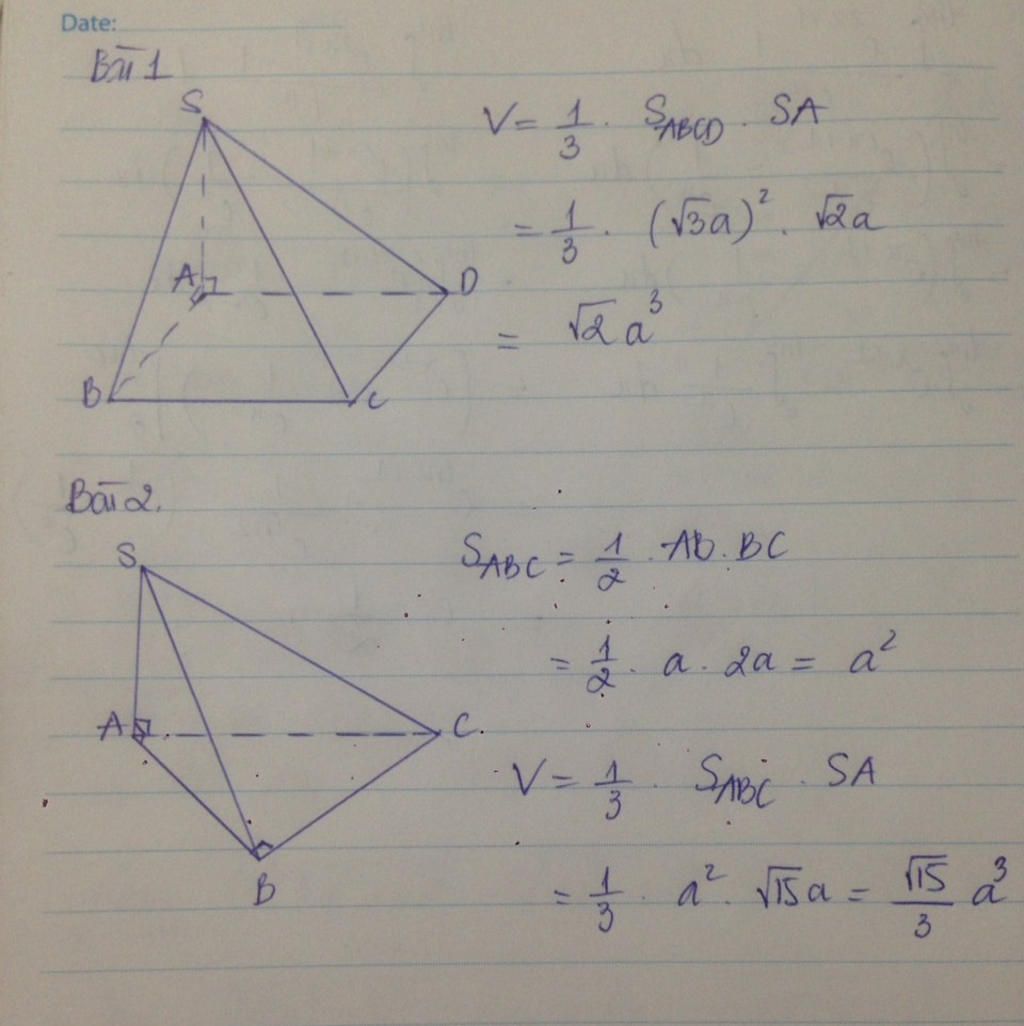 Date:
Bài 1
S
A
D
B
C
V = 1/3 . S_ABCD . SA
= 1/3 . (√3a)² . √2a
= √2 a³
Bài 2.
S
A
C.
B
S_ABC = 1/2 . AB . BC
= 1/2 . a . 2a = a²
V = 1/3 . S_ABC . SA
= 1/3 . a² . √15a = √15/3 a³